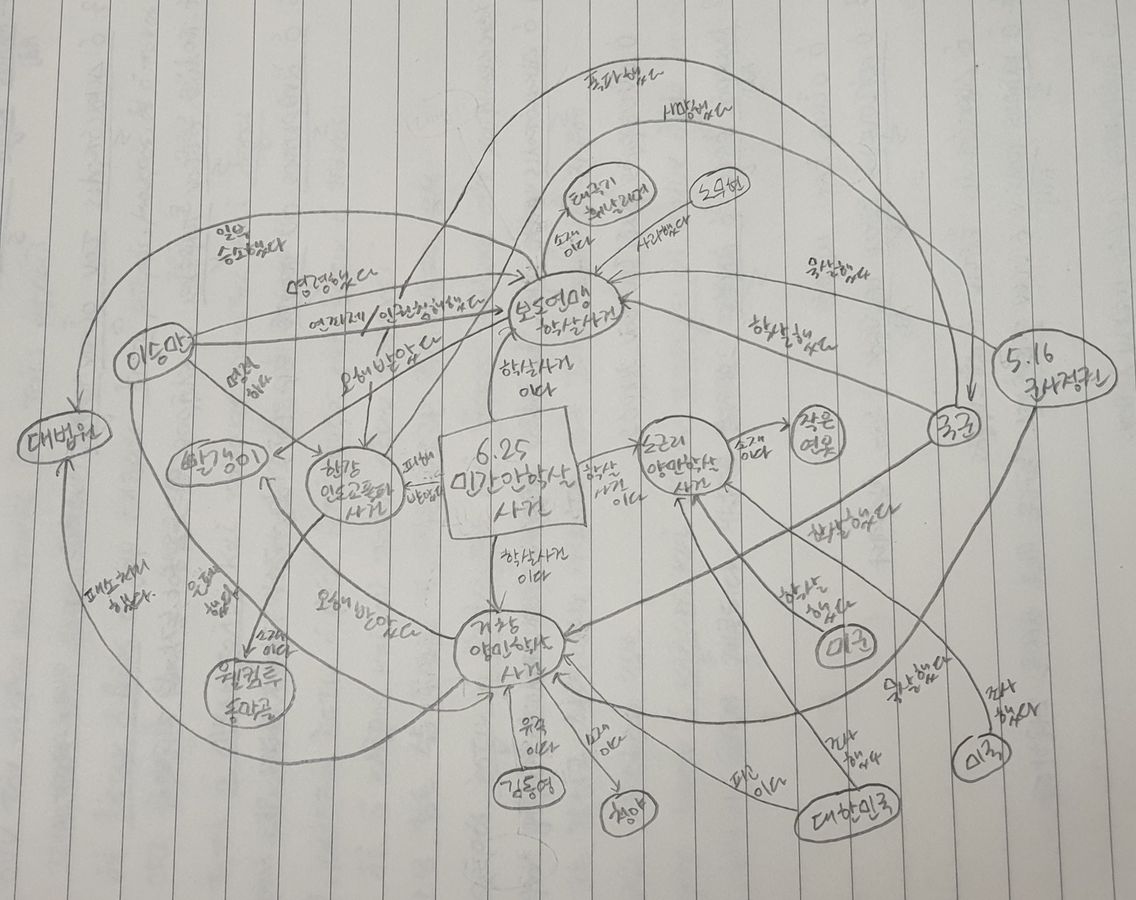 폭파했다
사망했다
태극기
휘날리며
노무현
소재
이다
사과했다
일부
승소했다
명령했다
연좌제/인권침해했다
보도연맹
학살사건
묵살했다
학살했다
이승만
명령
오해받았다
학살사건
이다
5.16
군사정권
대법원
빨갱이
한강
인도교폭파
사건
피해
6.25
민간인학살
사건
학살
사건
이다
노근리
양민학살
사건
소재
이다
작은
연못
국군
학살사건
이다
학살했다
패소처리
했다
은폐
했다
오해받았다
소재
이다
거창
양민학살
사건
학살
했다
미군
묵살했다
조사
했다
웰컴투
동막골
유족
이다
소재
이다
조사
했다
미국
김동영
청야
피고
이다
대한민국